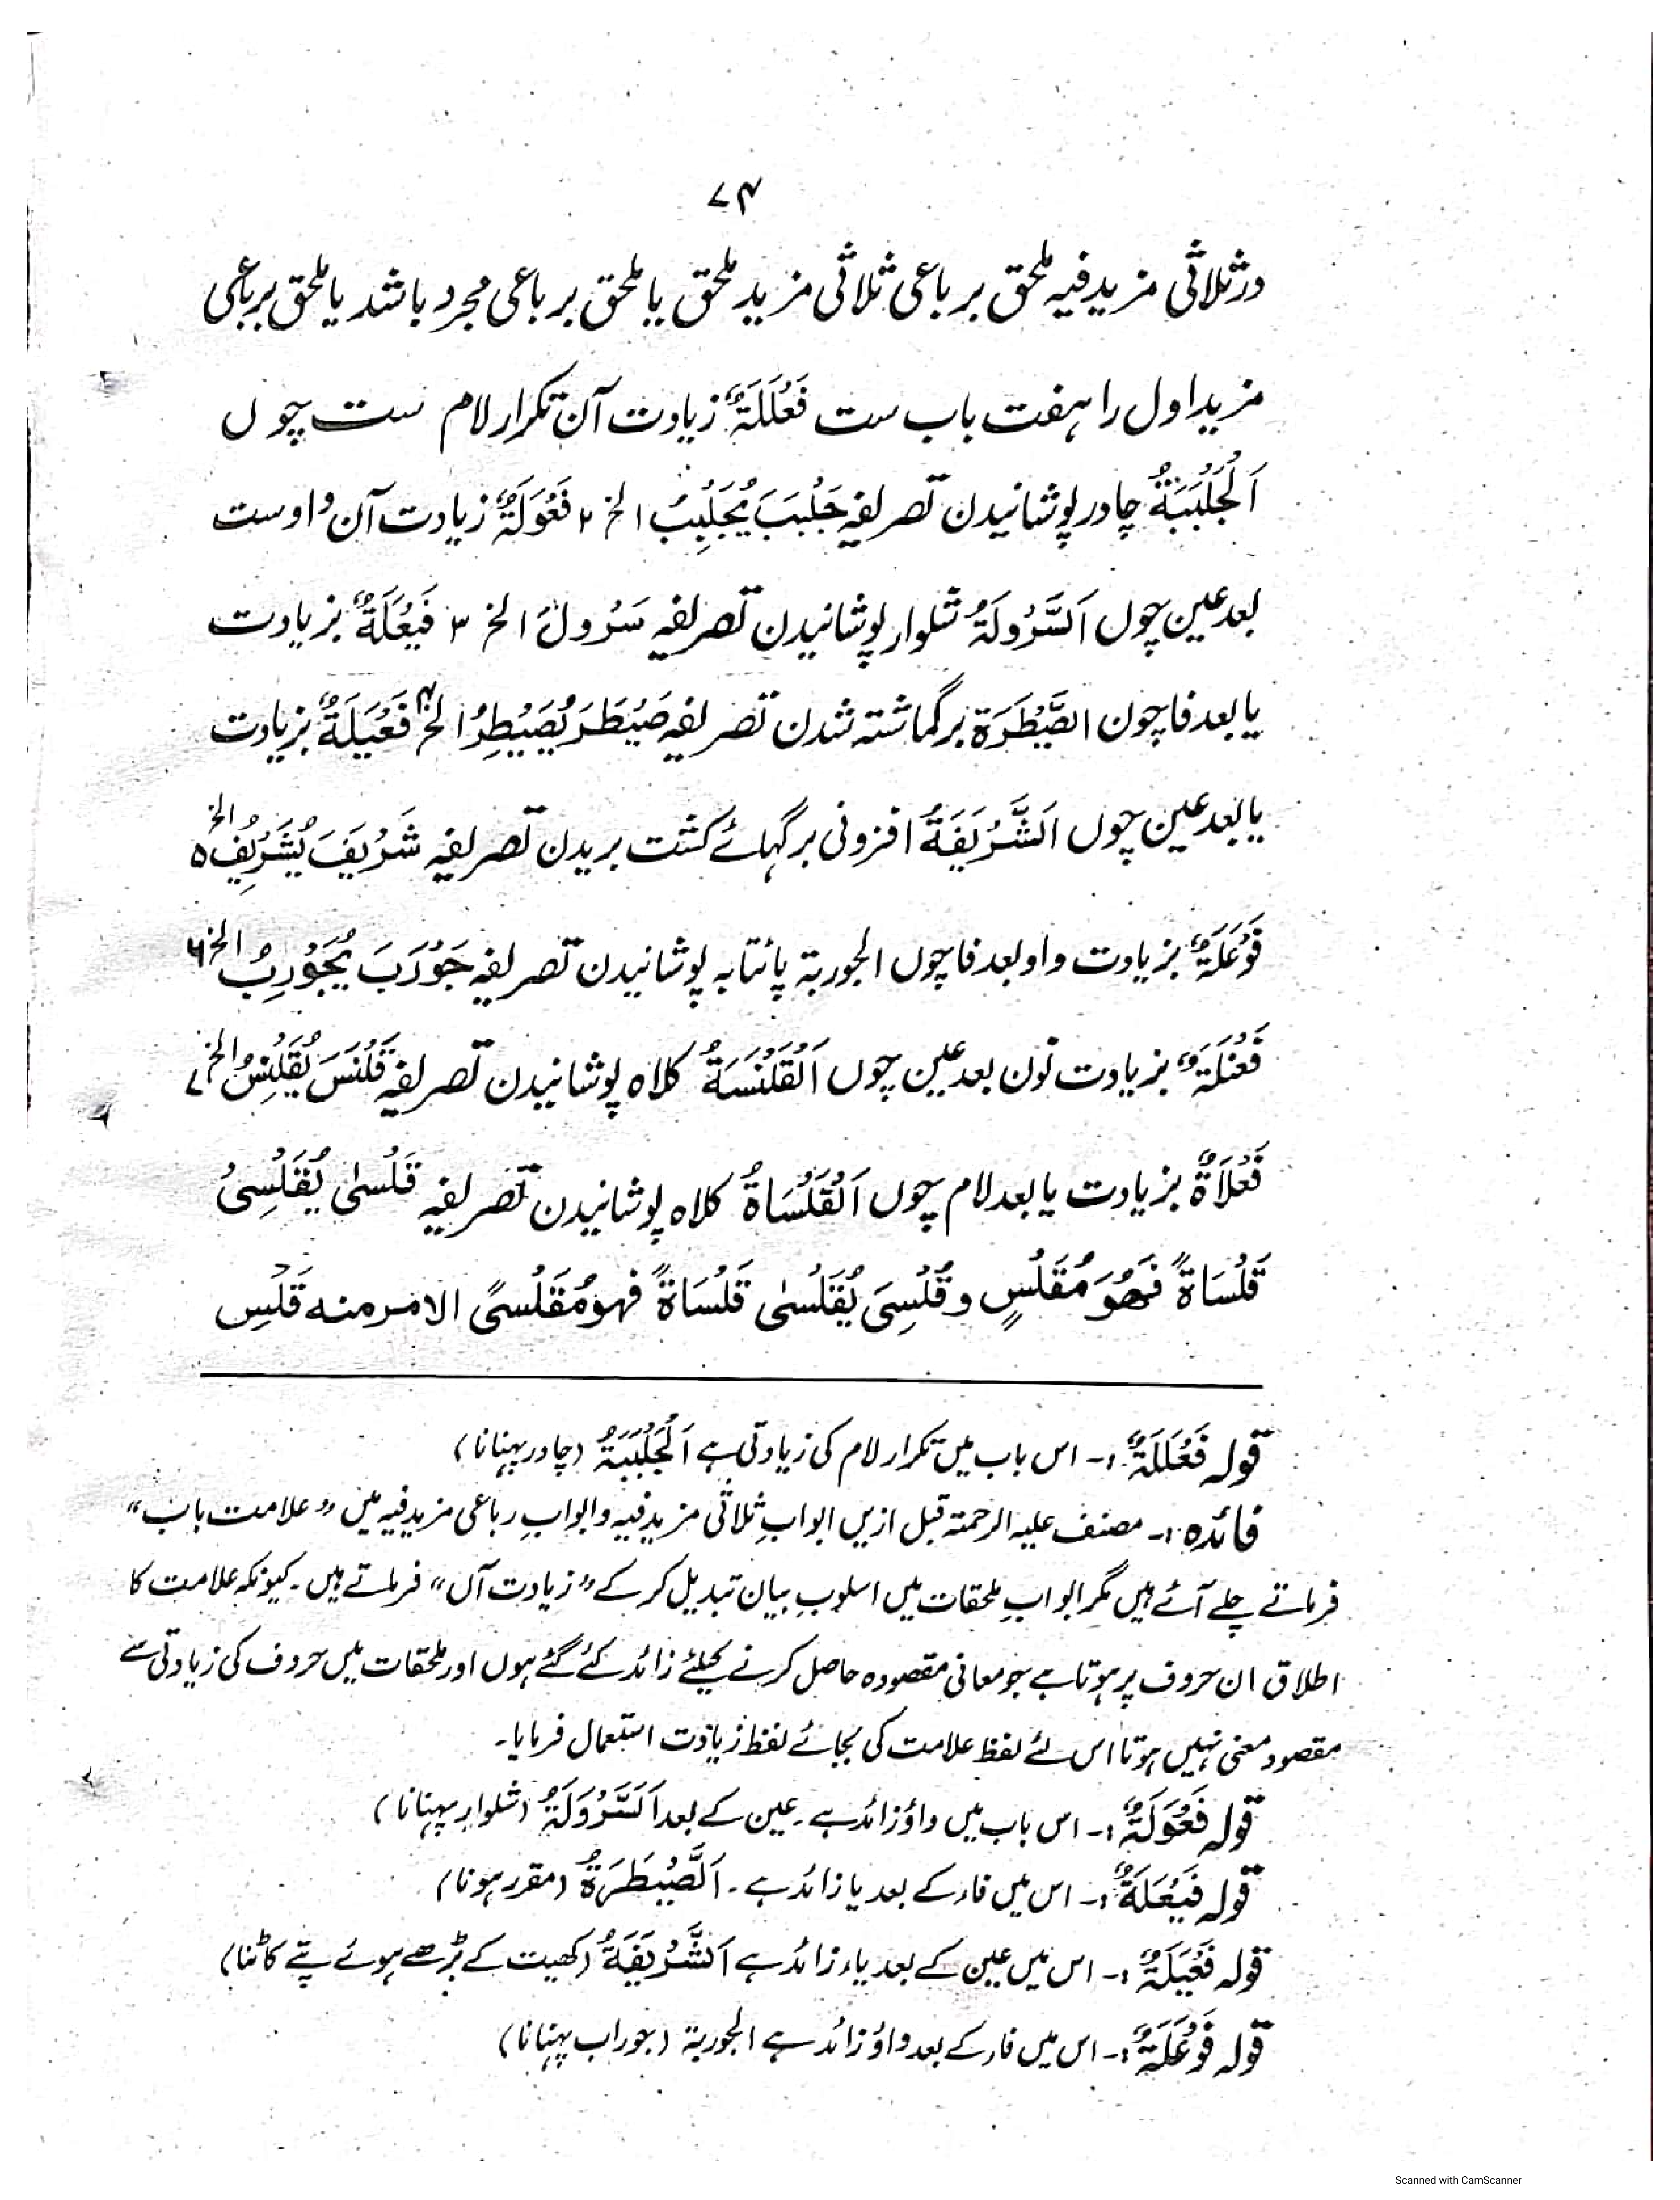 ۷۴
در ثلاثی مزید فیہ ملحق بر باعی ثلاثی مزید ملحق یا ملحق بر باعی مجرد باشد یا ملحق برباعی
مزید اول را ہفت باب ست فَعْلَلَةٌ زیادت آن تکرار لام ست چوں
اَلْجَلْبَبَةُ چادر پوشانیدن تصریفہ جَلْبَبَ يُجَلْبِبُ الخ ۲ فَعْوَلَةٌ زیادت آن واوست
بعد عین چوں اَلسَّرْوَلَةُ شلوار پوشانیدن تصریفہ سَرْوَلَ الخ ۳ فَيْعَلَةٌ بزیادت
یا بعد فا چون الصَّيْطَرَة برگماشتہ شدن تصریفہ صَيْطَرَ يُصَيْطِرُ الخ ۴ فَعْيَلَةٌ بزیادت
یا بعد عین چوں اَلشَّرْيَفَةُ افزونی برگہائے کشت بریدن تصریفہ شَرْيَفَ يُشَرْيِفُ الخ ۵
فَوْعَلَةٌ بزیادت واو بعد فا چوں الجوربة پائتابہ پوشانیدن تصریفہ جَوْرَبَ يُجَوْرِبُ الخ ۶
فَعْنَلَةٌ بزیادت نون بعد عین چوں اَلْقَلْنَسَةُ کلاہ پوشانیدن تصریفہ قَلْنَسَ يُقَلْنِسُ الخ ۷
فَعْلَاةٌ بزیادت یا بعد لام چوں اَلْقَلْسَاةُ کلاہ پوشانیدن تصریفہ قَلْسٰى يُقَلْسِىْ
قَلْسَاةً فَهُوَ مُقَلْسٍ و قُلْسِىَ يُقَلْسٰى قَلْسَاةً فهو مُقَلْسًى الامر منه قَلْسِ
قولہ فَعْلَلَةٌ :۔ اس باب میں تکرار لام کی زیادتی ہے اَلْجَلْبَبَةُ (چادر پہنانا)
فائدہ :۔ مصنف علیہ الرحمۃ قبل ازیں ابوابِ ثلاثی مزید فیہ و ابوابِ رباعی مزید فیہ میں “علامت باب”
فرماتے چلے آئے ہیں مگر ابوابِ ملحقات میں اسلوبِ بیان تبدیل کر کے “زیادت آں” فرماتے ہیں۔ کیونکہ علامت کا
اطلاق ان حروف پر ہوتا ہے جو معانی مقصودہ حاصل کرنے کیلئے زائد کئے گئے ہوں اور ملحقات میں حروف کی زیادتی سے
مقصود معنی نہیں ہوتا اس لئے لفظ علامت کی بجائے لفظ زیادت استعمال فرمایا۔
قولہ فَعْوَلَةٌ :۔ اس باب میں واؤ زائد ہے۔ عین کے بعد اَلسَّرْوَلَةُ (شلوار پہنانا)
قولہ فَيْعَلَةٌ :۔ اس میں فاء کے بعد یا زائد ہے۔ اَلصَّيْطَرَةُ (مقرر ہونا)
قولہ فَعْيَلَةٌ :۔ اس میں عین کے بعد یاء زائد ہے اَلشَّرْيَفَةُ (کھیت کے بڑھے ہوئے پتے کاٹنا)
قولہ فَوْعَلَةٌ :۔ اس میں فاء کے بعد واؤ زائد ہے الجوربة (جوراب پہنانا)
Scanned with CamScanner